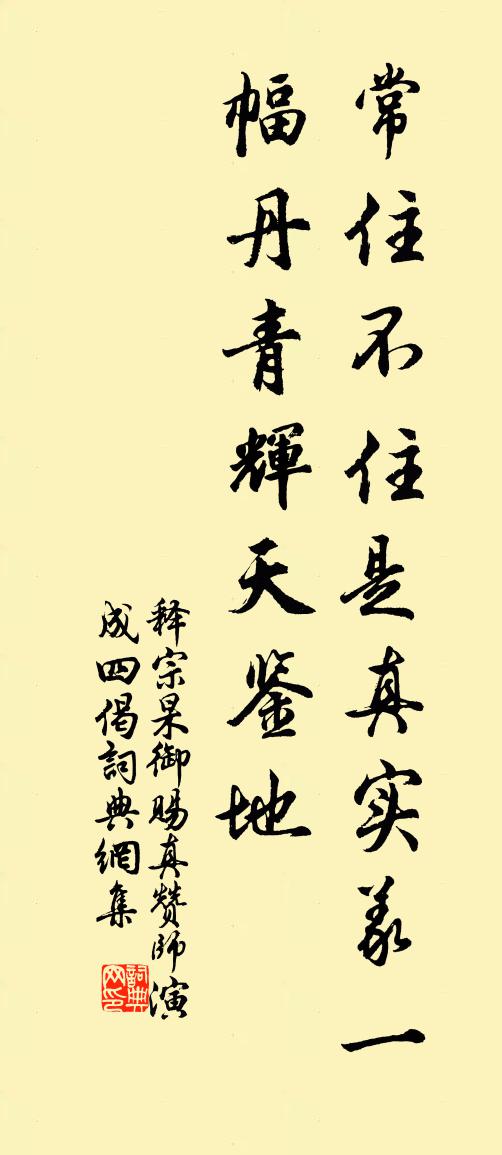 常住不住是真实义一
幅丹青輝天鉴地
释宗杲御賜真贊師演
成四偈詞典網集
詞典网印